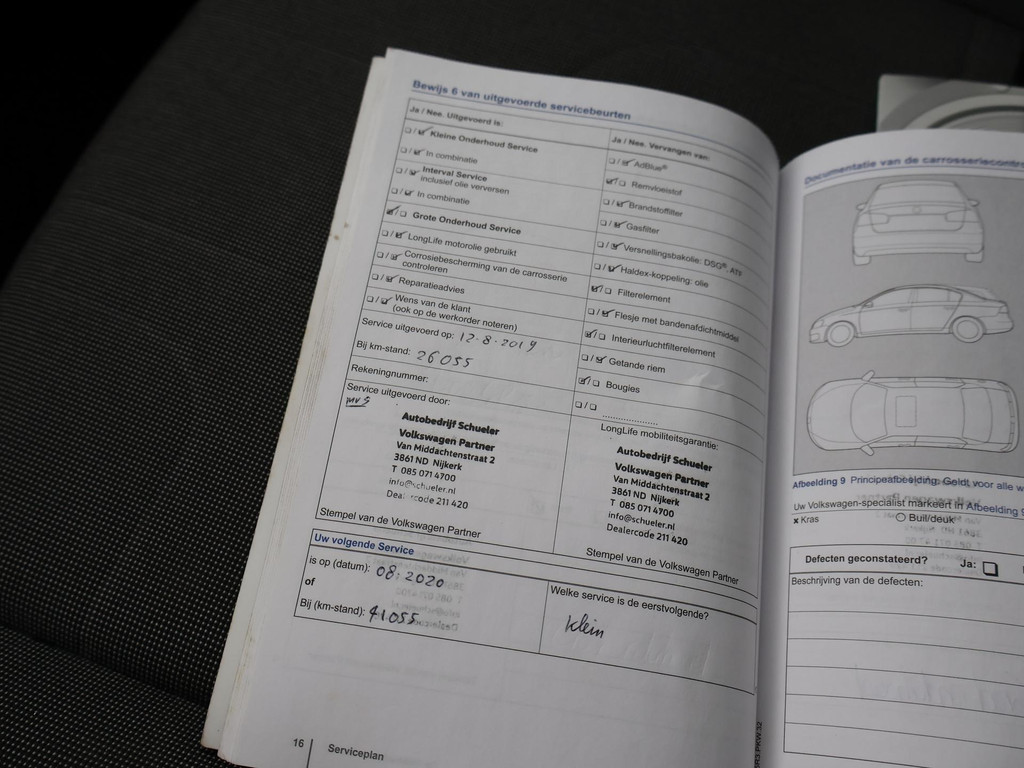 Bewijs 6 van uitgevoerde servicebeurten
Ja / Nee. Uitgevoerd is:
☐/☑ Kleine Onderhoud Service
☐/☑ In combinatie
☐/☑ Interval Service
inclusief olie verversen
☐/☑ In combinatie
☑/☐ Grote Onderhoud Service
☐/☑ LongLife motorolie gebruikt
☐/☑ Corrosiebescherming van de carrosserie
controleren
☐/☑ Reparatieadvies
☐/☑ Wens van de klant
(ook op de werkorder noteren)
Service uitgevoerd op: 12-8-2019
Bij km-stand: 26055
Rekeningnummer:
Service uitgevoerd door:
Autobedrijf Schueler
Volkswagen Partner
Van Middachtenstraat 2
3861 ND Nijkerk
T 085 071 4700
info@schueler.nl
Dealercode 211 420
Stempel van de Volkswagen Partner
Ja / Nee. Vervangen van:
☐/☑ AdBlue®
☑/☐ Remvloeistof
☐/☑ Brandstoffilter
☐/☑ Gasfilter
☐/☑ Versnellingsbakolie: DSG® ATF
☐/☑ Haldex-koppeling: olie
☑/☐ Filterelement
☐/☑ Flesje met bandenafdichtmiddel
☑/☐ Interieurluchtfilterelement
☐/☑ Getande riem
☑/☐ Bougies
☐/☐ ....................
LongLife mobiliteitsgarantie:
Autobedrijf Schueler
Volkswagen Partner
Van Middachtenstraat 2
3861 ND Nijkerk
T 085 071 4700
info@schueler.nl
Dealercode 211 420
Stempel van de Volkswagen Partner
Uw volgende Service
is op (datum): 08-2020
of
Bij (km-stand): 41055
Welke service is de eerstvolgende?
Klein
16 Serviceplan
Documentatie van de carrosseriecontro
Afbeelding 9 Principeafbeelding: Geldt voor alle w
Uw Volkswagen-specialist markeert in Afbeelding 9
x Kras
O Buil/deuk
Defecten geconstateerd? Ja: ☐
Beschrijving van de defecten: